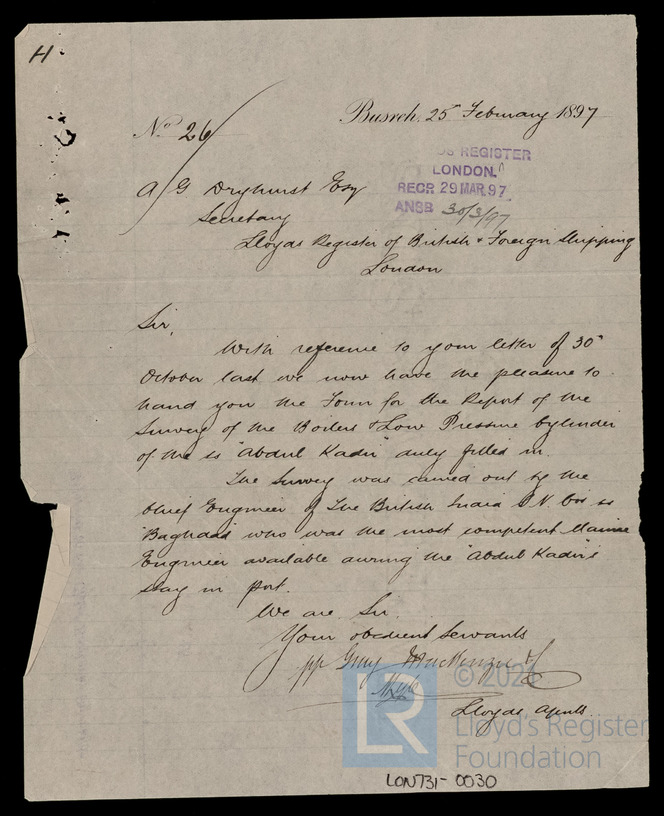 H
Busreh, 25" February 1897
No 26
LDS REGISTER
LONDON.
RECR 29 MAR. 97
ANSB 30/3/97
A/G Dryhurst Esq
Secretary
Lloyds Register of British & Foreign Shipping
London
Sir,
With reference to your letter of 30"
October last we now have the pleasure to
hand you the Form for the Report of the
Survey of the Boilers & Low Pressure Cylinder
of the ss "Abdul Kadir" duly filled in.
The Survey was carried out by the
Chief Engineer of The British India S.N. Cos ss
"Baghdad" who was the most competent Marine
Engineer available during the "Abdul Kadir's
stay in port.
We are Sir.
Your obedient Servants
pp Gray Mackenzie &
Lloyds Agents.
LR
© 2021
Lloyd's Register
Foundation
LON731-0030